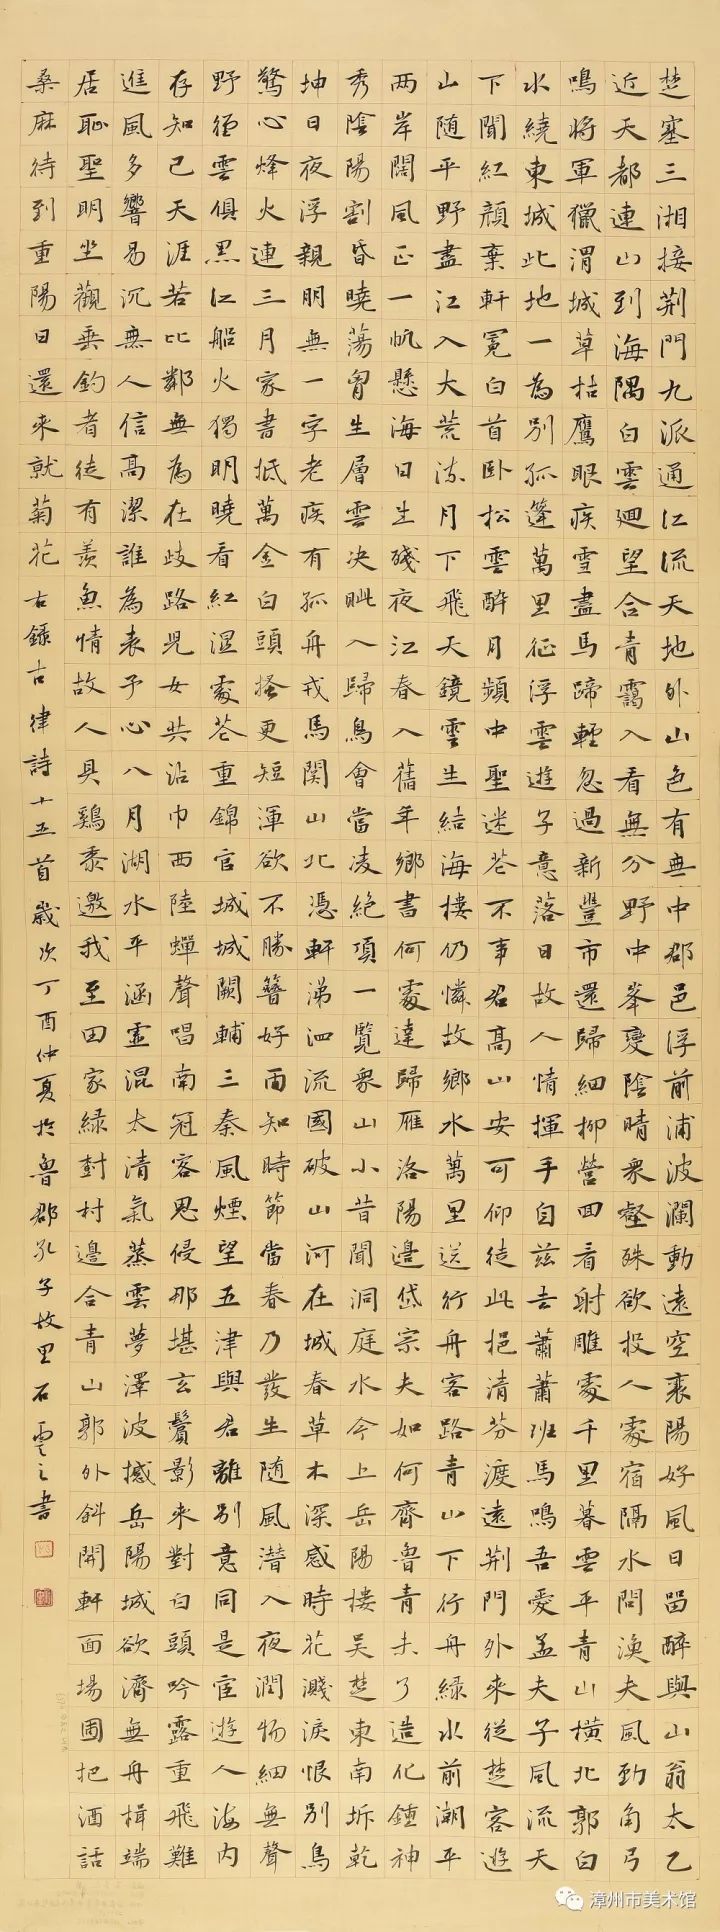 楚塞三湘接荆門九派通江流天地外山色有無中郡邑浮前浦波瀾動遠空襄陽好風日留醉與山翁太乙
近天都連山到海隅白雲廻望合青靄入看無分野中峯變陰晴衆壑殊欲投人處宿隔水問漁夫風勁角弓
鳴將軍獵渭城草枯鷹眼疾雪盡馬蹄輕忽過新豐市還歸細柳營回看射雕處千里暮雲平青山橫北郭白
水繞東城此地一為別孤篷萬里征浮雲遊子意落日故人情揮手自兹去蕭蕭班馬鳴吾愛孟夫子風流天
下聞紅顔棄軒冕白首卧松雲醉月頻中聖迷花不事君高山安可仰徒此挹清芬渡遠荆門外來從楚客遊
山随平野盡江入大荒流月下飛天鏡雲生結海樓仍憐故鄉水萬里送行舟客路青山下行舟綠水前潮平
两岸闊風正一帆懸海日生殘夜江春入舊年鄉書何處達歸雁洛陽邊岱宗夫如何齊魯青未了造化鍾神
秀陰陽割昏曉蕩胷生層雲决眦入歸鳥會當凌絶頂一覽衆山小昔聞洞庭水今上岳陽樓吴楚東南坼乾
坤日夜浮親朋無一字老疾有孤舟戎馬関山北憑軒涕泗流國破山河在城春草木深感時花濺淚恨别鳥
驚心烽火連三月家書抵萬金白頭搔更短渾欲不勝簪好雨知時節當春乃發生随風潜入夜潤物細無聲
野徑雲俱黑江船火獨明曉看紅濕處花重錦官城城闕輔三秦風煙望五津與君離别意同是宦遊人海内
存知己天涯若比鄰無為在歧路兒女共沾巾西陸蟬聲唱南冠客思侵那堪玄鬢影來對白頭吟露重飛難
進風多響易沉無人信高潔誰為表予心八月湖水平涵虚混太清氣蒸雲夢澤波撼岳陽城欲濟無舟楫端
居耻聖明坐觀垂釣者徒有羡魚情故人具鷄黍邀我至田家綠树村邊合青山郭外斜開軒面場圃把酒話
桑麻待到重陽日還來就菊花右錄古律詩十五首歲次丁酉仲夏於魯郡孔子故里石雲之書
漳州市美术馆